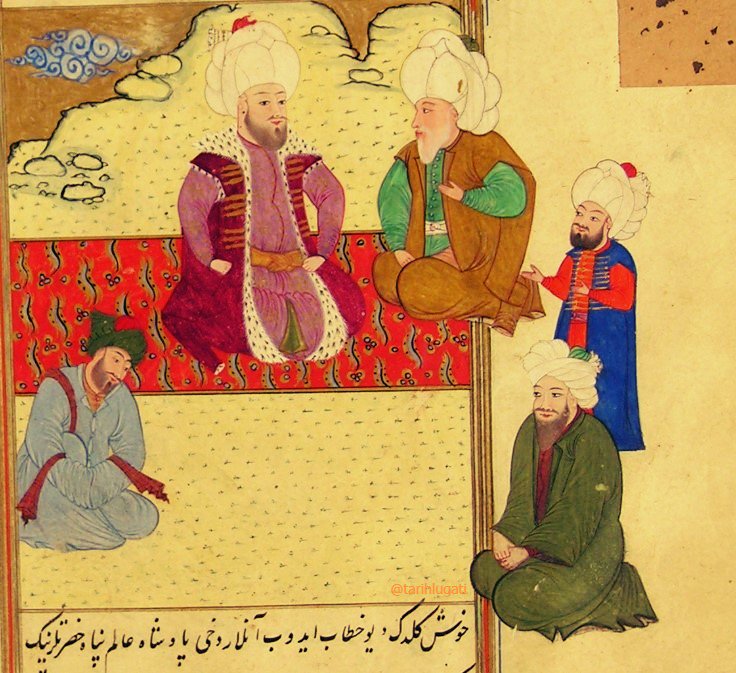 @tarihlugati
خوش كلدك ديو خطاب ايدوب آنلار دخی پادشاه عالم پناه حضرتلرينك